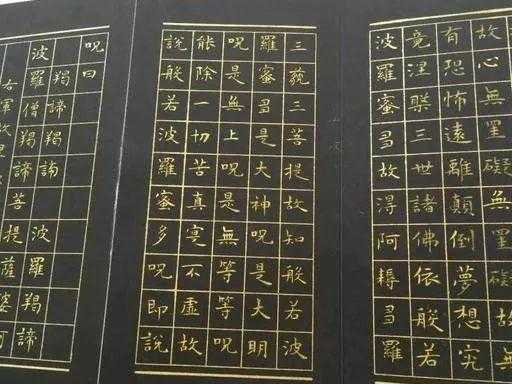 故心無罣礙無罣礙故無
有恐怖遠離顛倒夢想究
竟涅槃三世諸佛依般若
波羅蜜多故得阿耨多羅
三藐三菩提故知般若波
羅蜜多是大神呪是大明
呪是無上呪是無等等呪
能除一切苦真實不虛故
說般若波羅蜜多呪即說
呪曰
羯諦羯諦 波羅羯諦
波羅僧羯諦菩提薩婆訶